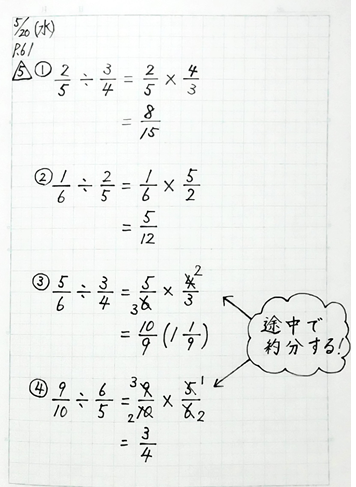 5/20(水)
P.61
5 ① 2/5 ÷ 3/4 = 2/5 × 4/3
= 8/15
② 1/6 ÷ 2/5 = 1/6 × 5/2
= 5/12
③ 5/6 ÷ 3/4 = 5/6 3 × 4/3 2
= 10/9 (1 1/9)
途中で
約分する!
④ 9/10 ÷ 6/5 = 3 9/10 2 × 5/6 1 2
= 3/4